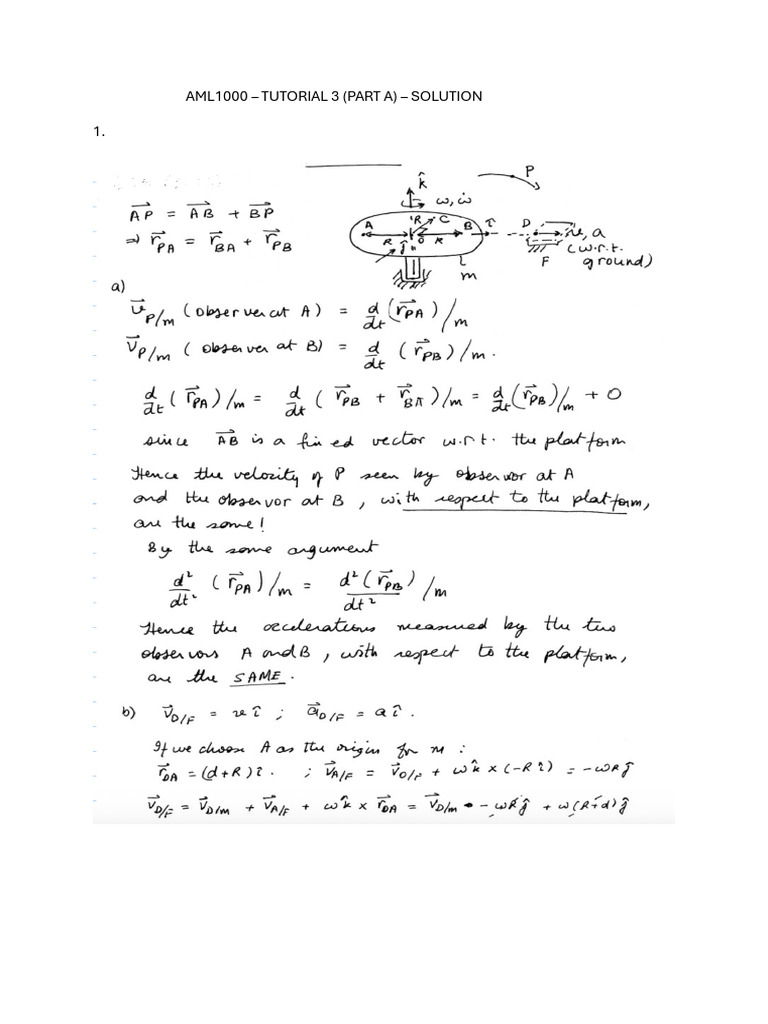 AML1000 – TUTORIAL 3 (PART A) – SOLUTION
1.
P
k̂
ω, ω̇
AP⃗ = AB⃗ + BP⃗
A R C B î D v, a
R O R
(w.r.t.
ĵ F ground)
m
⇒ r⃗_PA = r⃗_BA + r⃗_PB
a)
v⃗_P/m (observer at A) = d/dt (r⃗_PA)/m
v⃗_P/m (observer at B) = d/dt (r⃗_PB)/m.
d/dt (r⃗_PA)/m = d/dt (r⃗_PB + r⃗_BA)/m = d/dt (r⃗_PB)/m + 0
since AB⃗ is a fixed vector w.r.t. the platform
Hence the velocity of P seen by observor at A
and the observor at B, with respect to the platform,
are the same!
By the same argument
d²/dt² (r⃗_PA)/m = d²(r⃗_PB)/dt² /m
Hence the accelerations measured by the two
observors A and B, with respect to the platform,
are the SAME.
b) v⃗_D/F = v î ; a⃗_D/F = a î.
If we choose A as the origin for m :
r⃗_DA = (d+R) î. ; v⃗_A/F = v⃗_O/F + ω k̂ × (-R î) = -ωR ĵ
v⃗_D/F = v⃗_D/m + v⃗_A/F + ω k̂ × r⃗_DA = v⃗_D/m - ωR ĵ + ω(R+d) ĵ